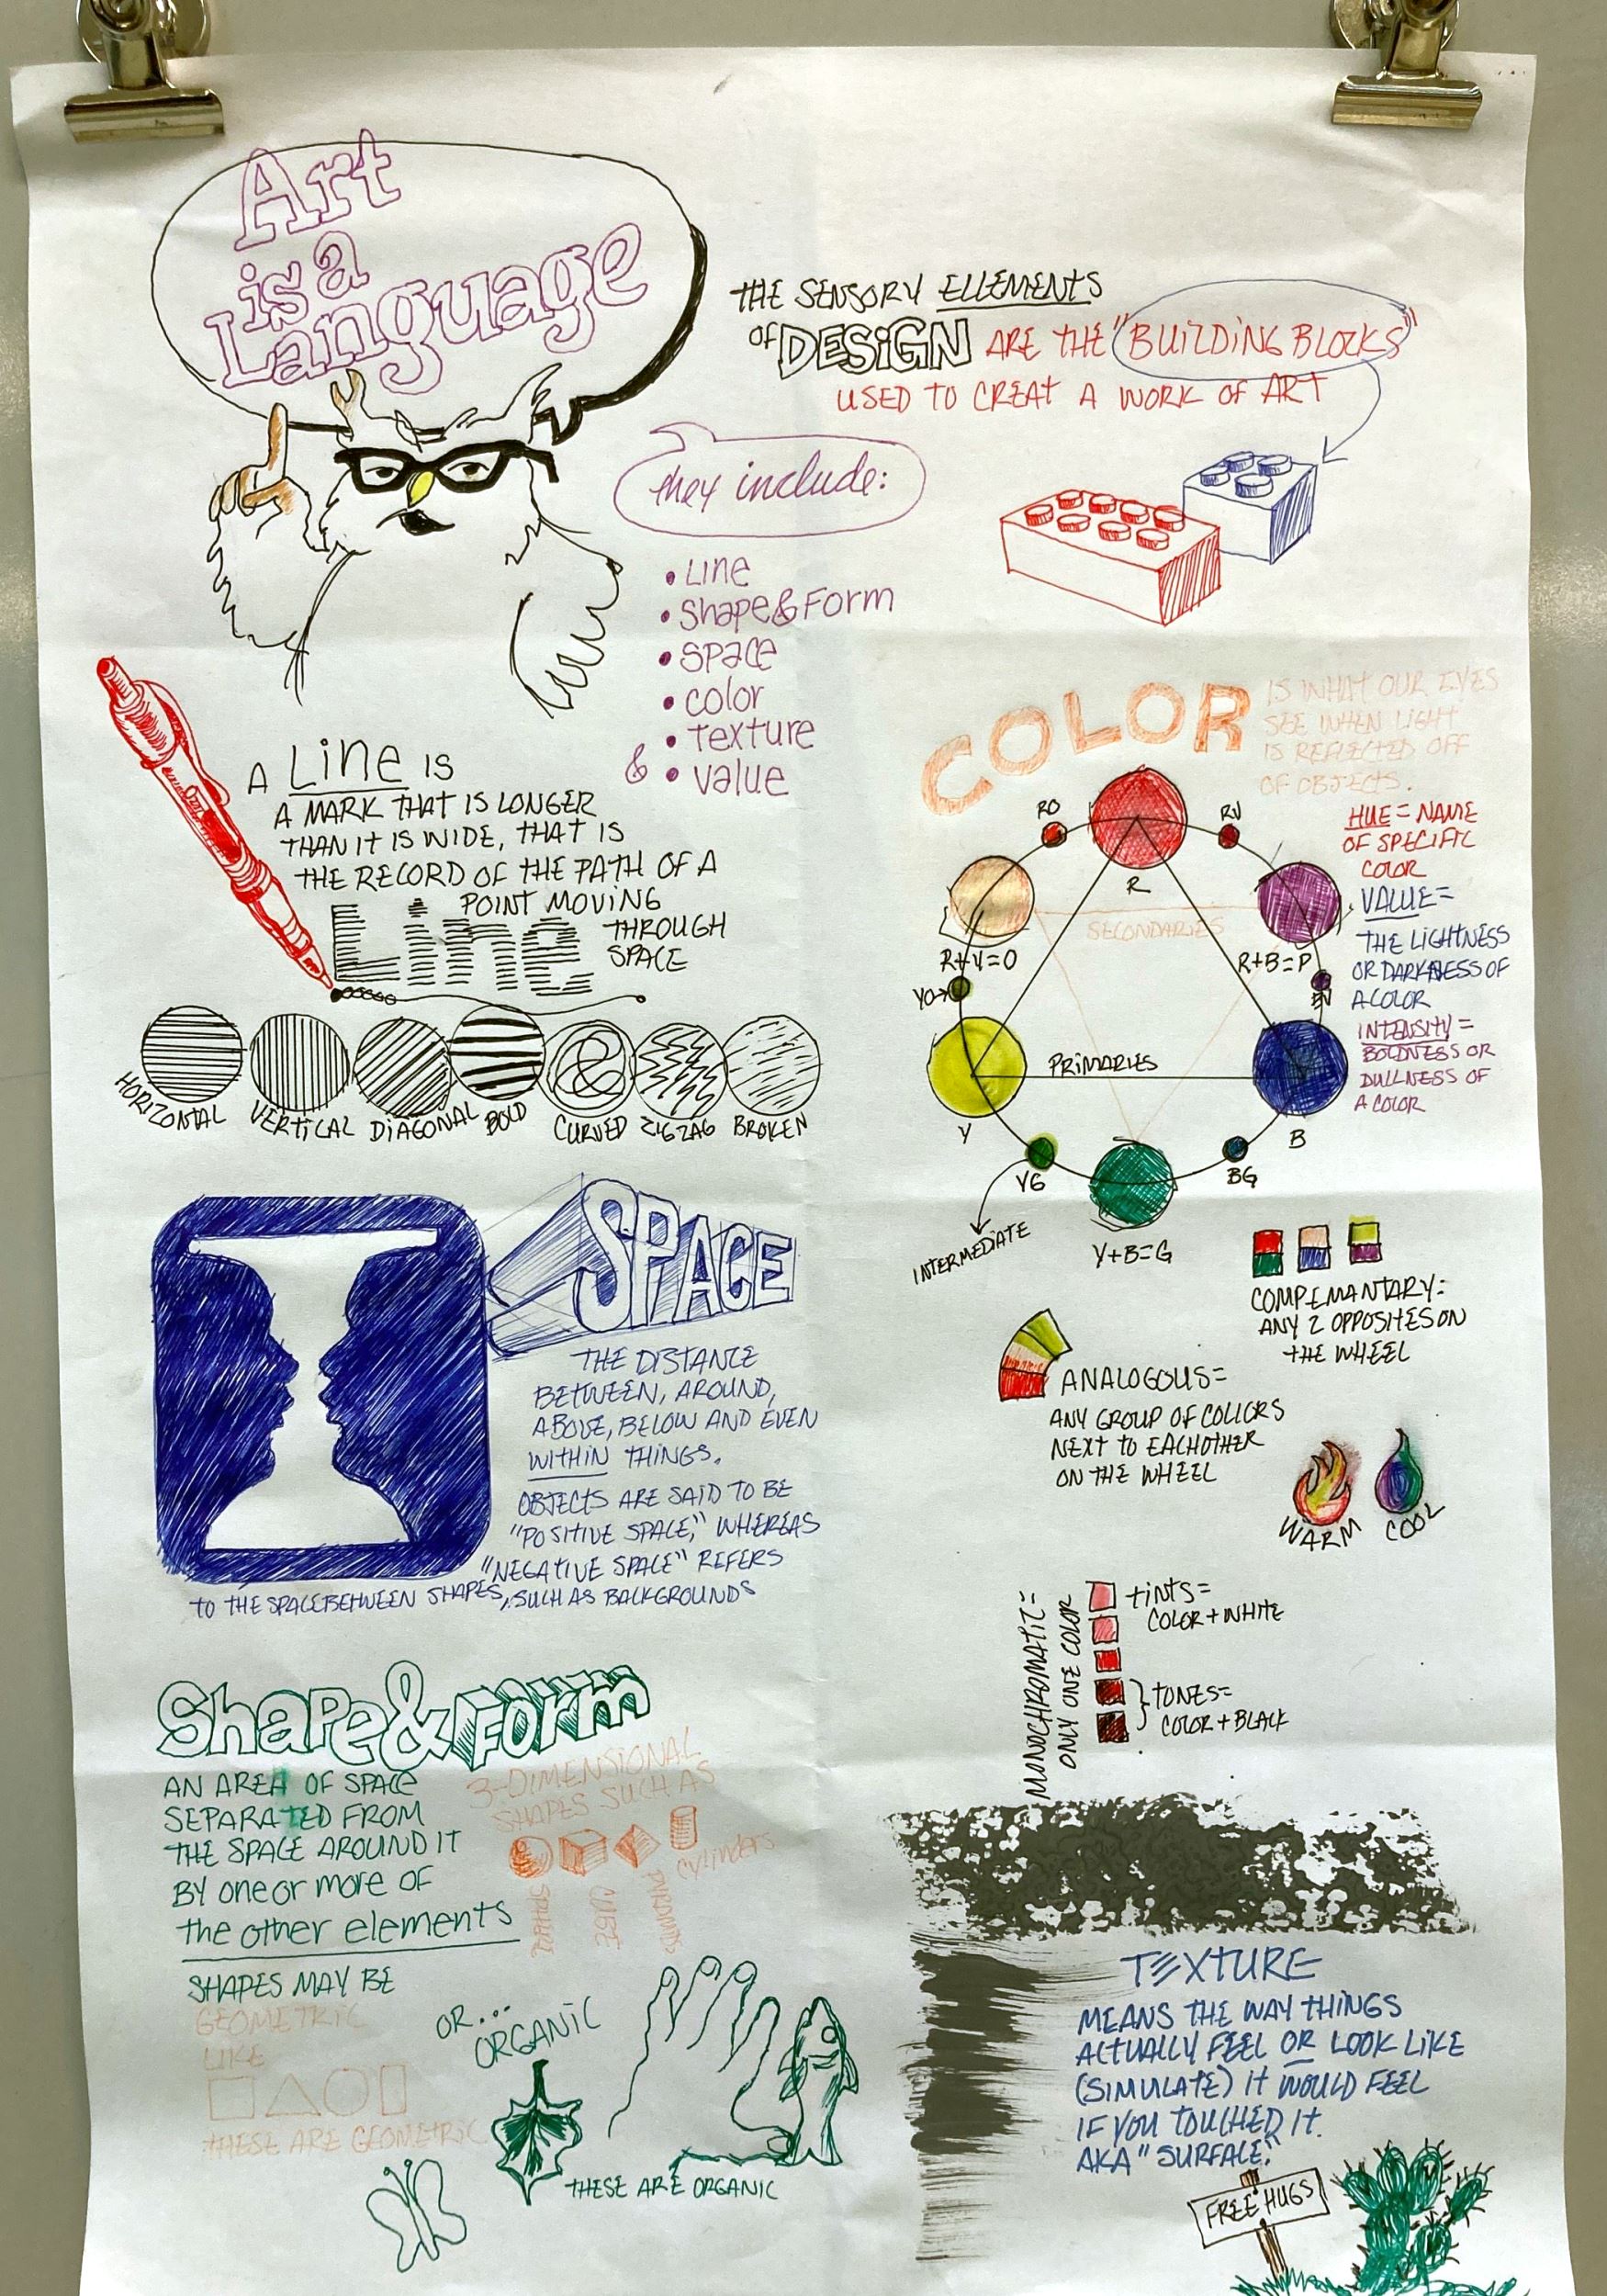 Art
is a
Language
THE SENSORY ELLEMENTS
OF DESIGN ARE THE "BUILDING BLOCKS"
USED TO CREAT A WORK OF ART
they include:
• Line
• Shape & Form
• Space
• color
• Texture
& • value
A Line IS
A MARK THAT IS LONGER
THAN IT IS WIDE, THAT IS
THE RECORD OF THE PATH OF A
POINT MOVING
THROUGH
SPACE
Line
HORIZONTAL
VERTICAL
DIAGONAL
BOLD
CURVED
ZIGZAG
BROKEN
SPACE
THE DISTANCE
BETWEEN, AROUND,
ABOVE, BELOW AND EVEN
WITHIN THINGS.
OBJECTS ARE SAID TO BE
"POSITIVE SPACE," WHEREAS
"NEGATIVE SPACE" REFERS
TO THE SPACE BETWEEN SHAPES, SUCH AS BACKGROUNDS
Shape & Form
AN AREA OF SPACE
SEPARATED FROM
THE SPACE AROUND IT
BY one or more OF
the other elements
3-DIMENSIONAL
SHAPES SUCH AS
SPHERE
CUBE
PYRAMIDS
CYLINDERS
SHAPES MAY BE
GEOMETRIC
LIKE
THESE ARE GEOMETRIC
OR...
ORGANIC
THESE ARE ORGANIC
COLOR
IS WHAT OUR EYES
SEE WHEN LIGHT
IS REFLECTED OFF
OF OBJECTS.
RO
RV
R
SECONDARIES
R+Y=O
R+B=P
YO→
BV
PRIMARIES
Y
B
YG
BG
INTERMEDIATE
Y+B=G
HUE = NAME
OF SPECIFIC
COLOR
VALUE =
THE LIGHTNESS
OR DARKNESS OF
A COLOR
INTENSITY =
BOLDNESS OR
DULLNESS OF
A COLOR
COMPLEMANTARY=
ANY 2 OPPOSITES ON
THE WHEEL
ANALOGOUS=
ANY GROUP OF COLORS
NEXT TO EACHOTHER
ON THE WHEEL
WARM
COOL
MONOCHROMATIC=
ONLY ONE COLOR
TINTS=
COLOR+WHITE
TONES=
COLOR+BLACK
TEXTURE
MEANS THE WAY THINGS
ACTUALLY FEEL OR LOOK LIKE
(SIMULATE) IT WOULD FEEL
IF YOU TOUCHED IT.
AKA "SURFACE."
FREE HUGS